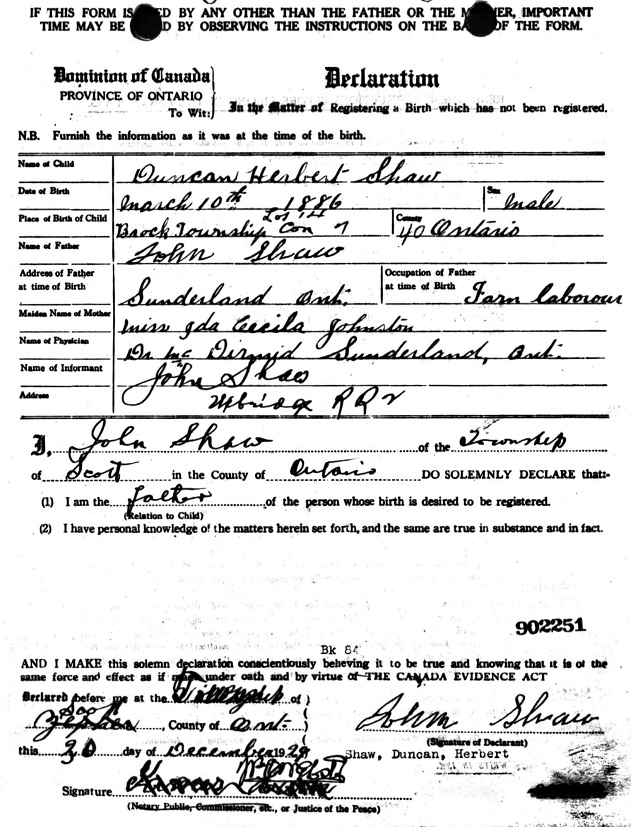 IF THIS FORM IS ED BY ANY OTHER THAN THE FATHER OR THE M ER, IMPORTANT
TIME MAY BE D BY OBSERVING THE INSTRUCTIONS ON THE BA OF THE FORM.
Dominion of Canada
Declaration
PROVINCE OF ONTARIO
To Wit:
In the Matter of Registering a Birth which has not been registered.
N.B. Furnish the information as it was at the time of the birth.
Name of Child Duncan Herbert Shaw
Date of Birth March 10th 1886 Sex male
Place of Birth of Child Brock Township Lot 14 Con 7 County 40 Ontario
Name of Father John Shaw
Address of Father at time of Birth Sunderland Ont. Occupation of Father at time of Birth Farm labourour
Maiden Name of Mother miss Ida Cecila Johnston
Name of Physician Dr Mc Dirmid Sunderland, Ont.
Name of Informant John Shaw
Address Uxbridge R R 2
I, John Shaw of the Township
of Scott in the County of Ontario DO SOLEMNLY DECLARE that:-
(1) I am the father of the person whose birth is desired to be registered.
(Relation to Child)
(2) I have personal knowledge of the matters herein set forth, and the same are true in substance and in fact.
902251
Bk 84
AND I MAKE this solemn declaration conscientiously believing it to be true and knowing that it is of the
same force and effect as if made under oath and by virtue of THE CANADA EVIDENCE ACT
Declared before me at the Township of
Scott
, County of Ont.
John Shaw
(Signature of Declarant)
this 30 day of December 1929
Shaw, Duncan, Herbert
Signature
(Notary Public, Commissioner, etc., or Justice of the Peace)